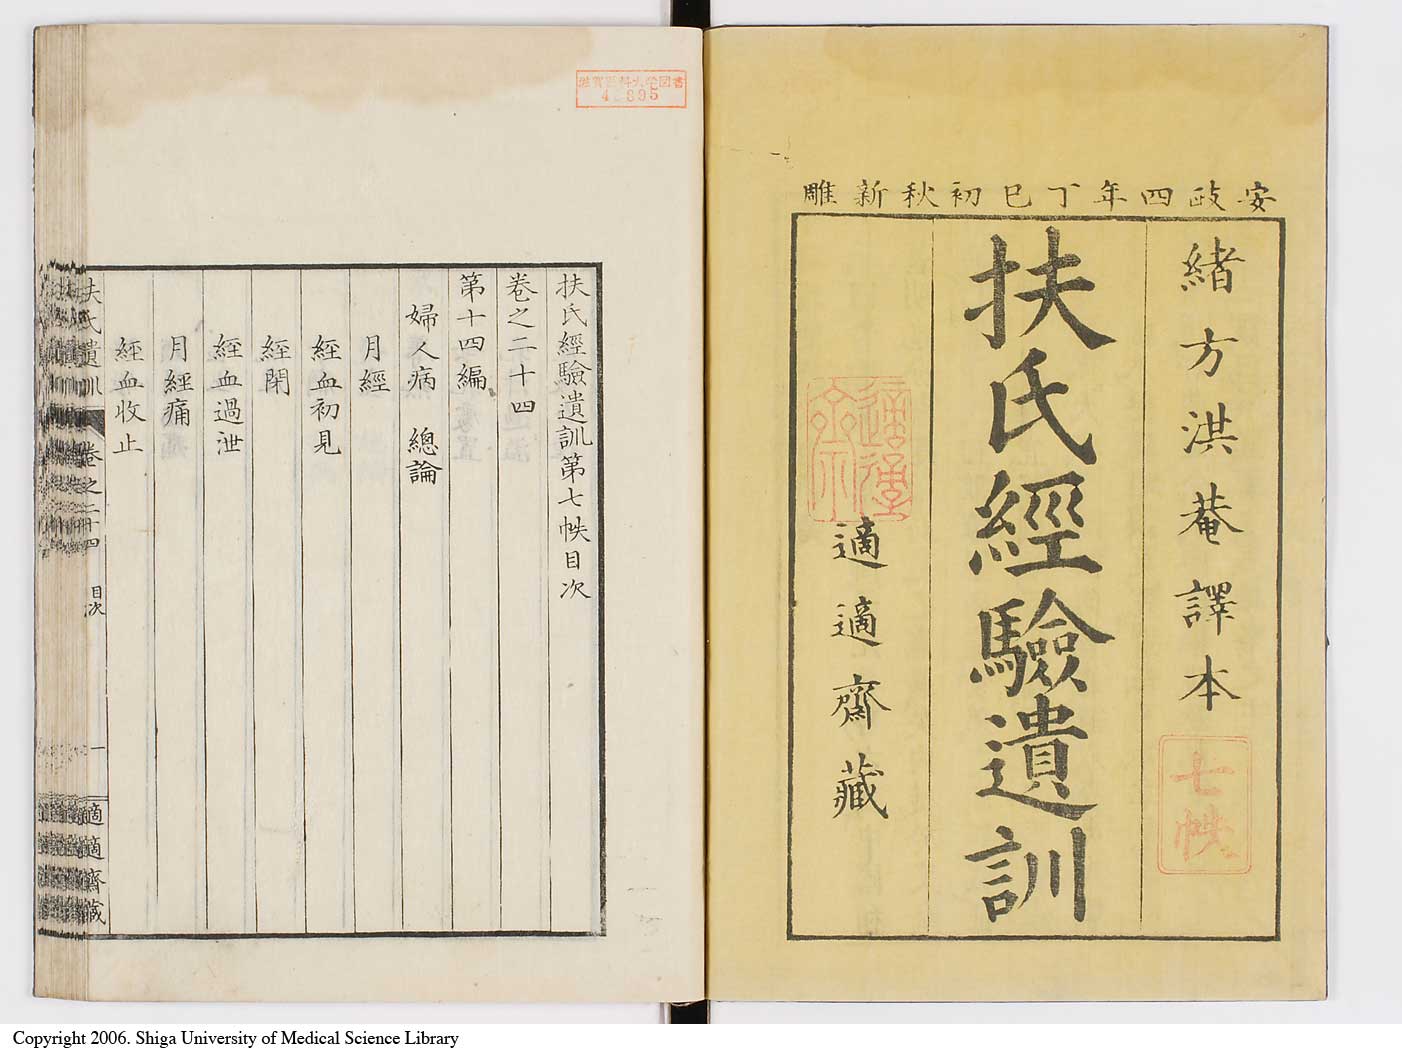 安政四年丁巳初秋新雕
緒方洪菴譯本
七帙
扶氏經驗遺訓
適適齋藏
扶氏經驗遺訓第七帙目次
卷之二十四
第十四編
婦人病 總論
月經
經血初見
經閉
經血過泄
月經痛
經血收止
扶氏遺訓 卷之二十四 目次 一 適適齋藏
滋賀医科大学図書
Copyright 2006. Shiga University of Medical Science Library